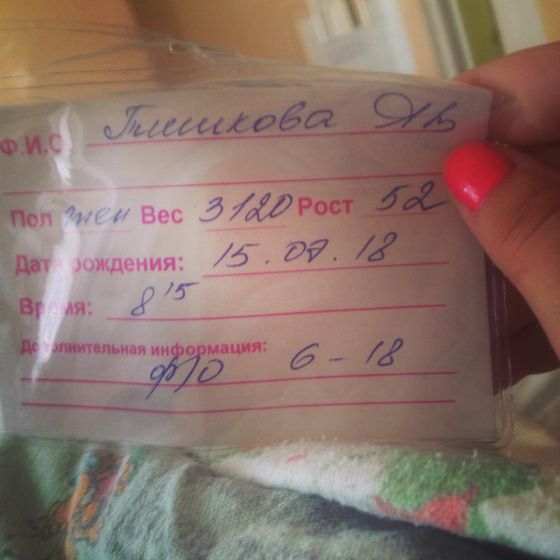 Ф.И.О. Глишкова ЯВ
Пол жен Вес 3120 Рост 52
Дата рождения: 15.07.18
Время: 8 15
Дополнительная информация:
ф/о 6-18